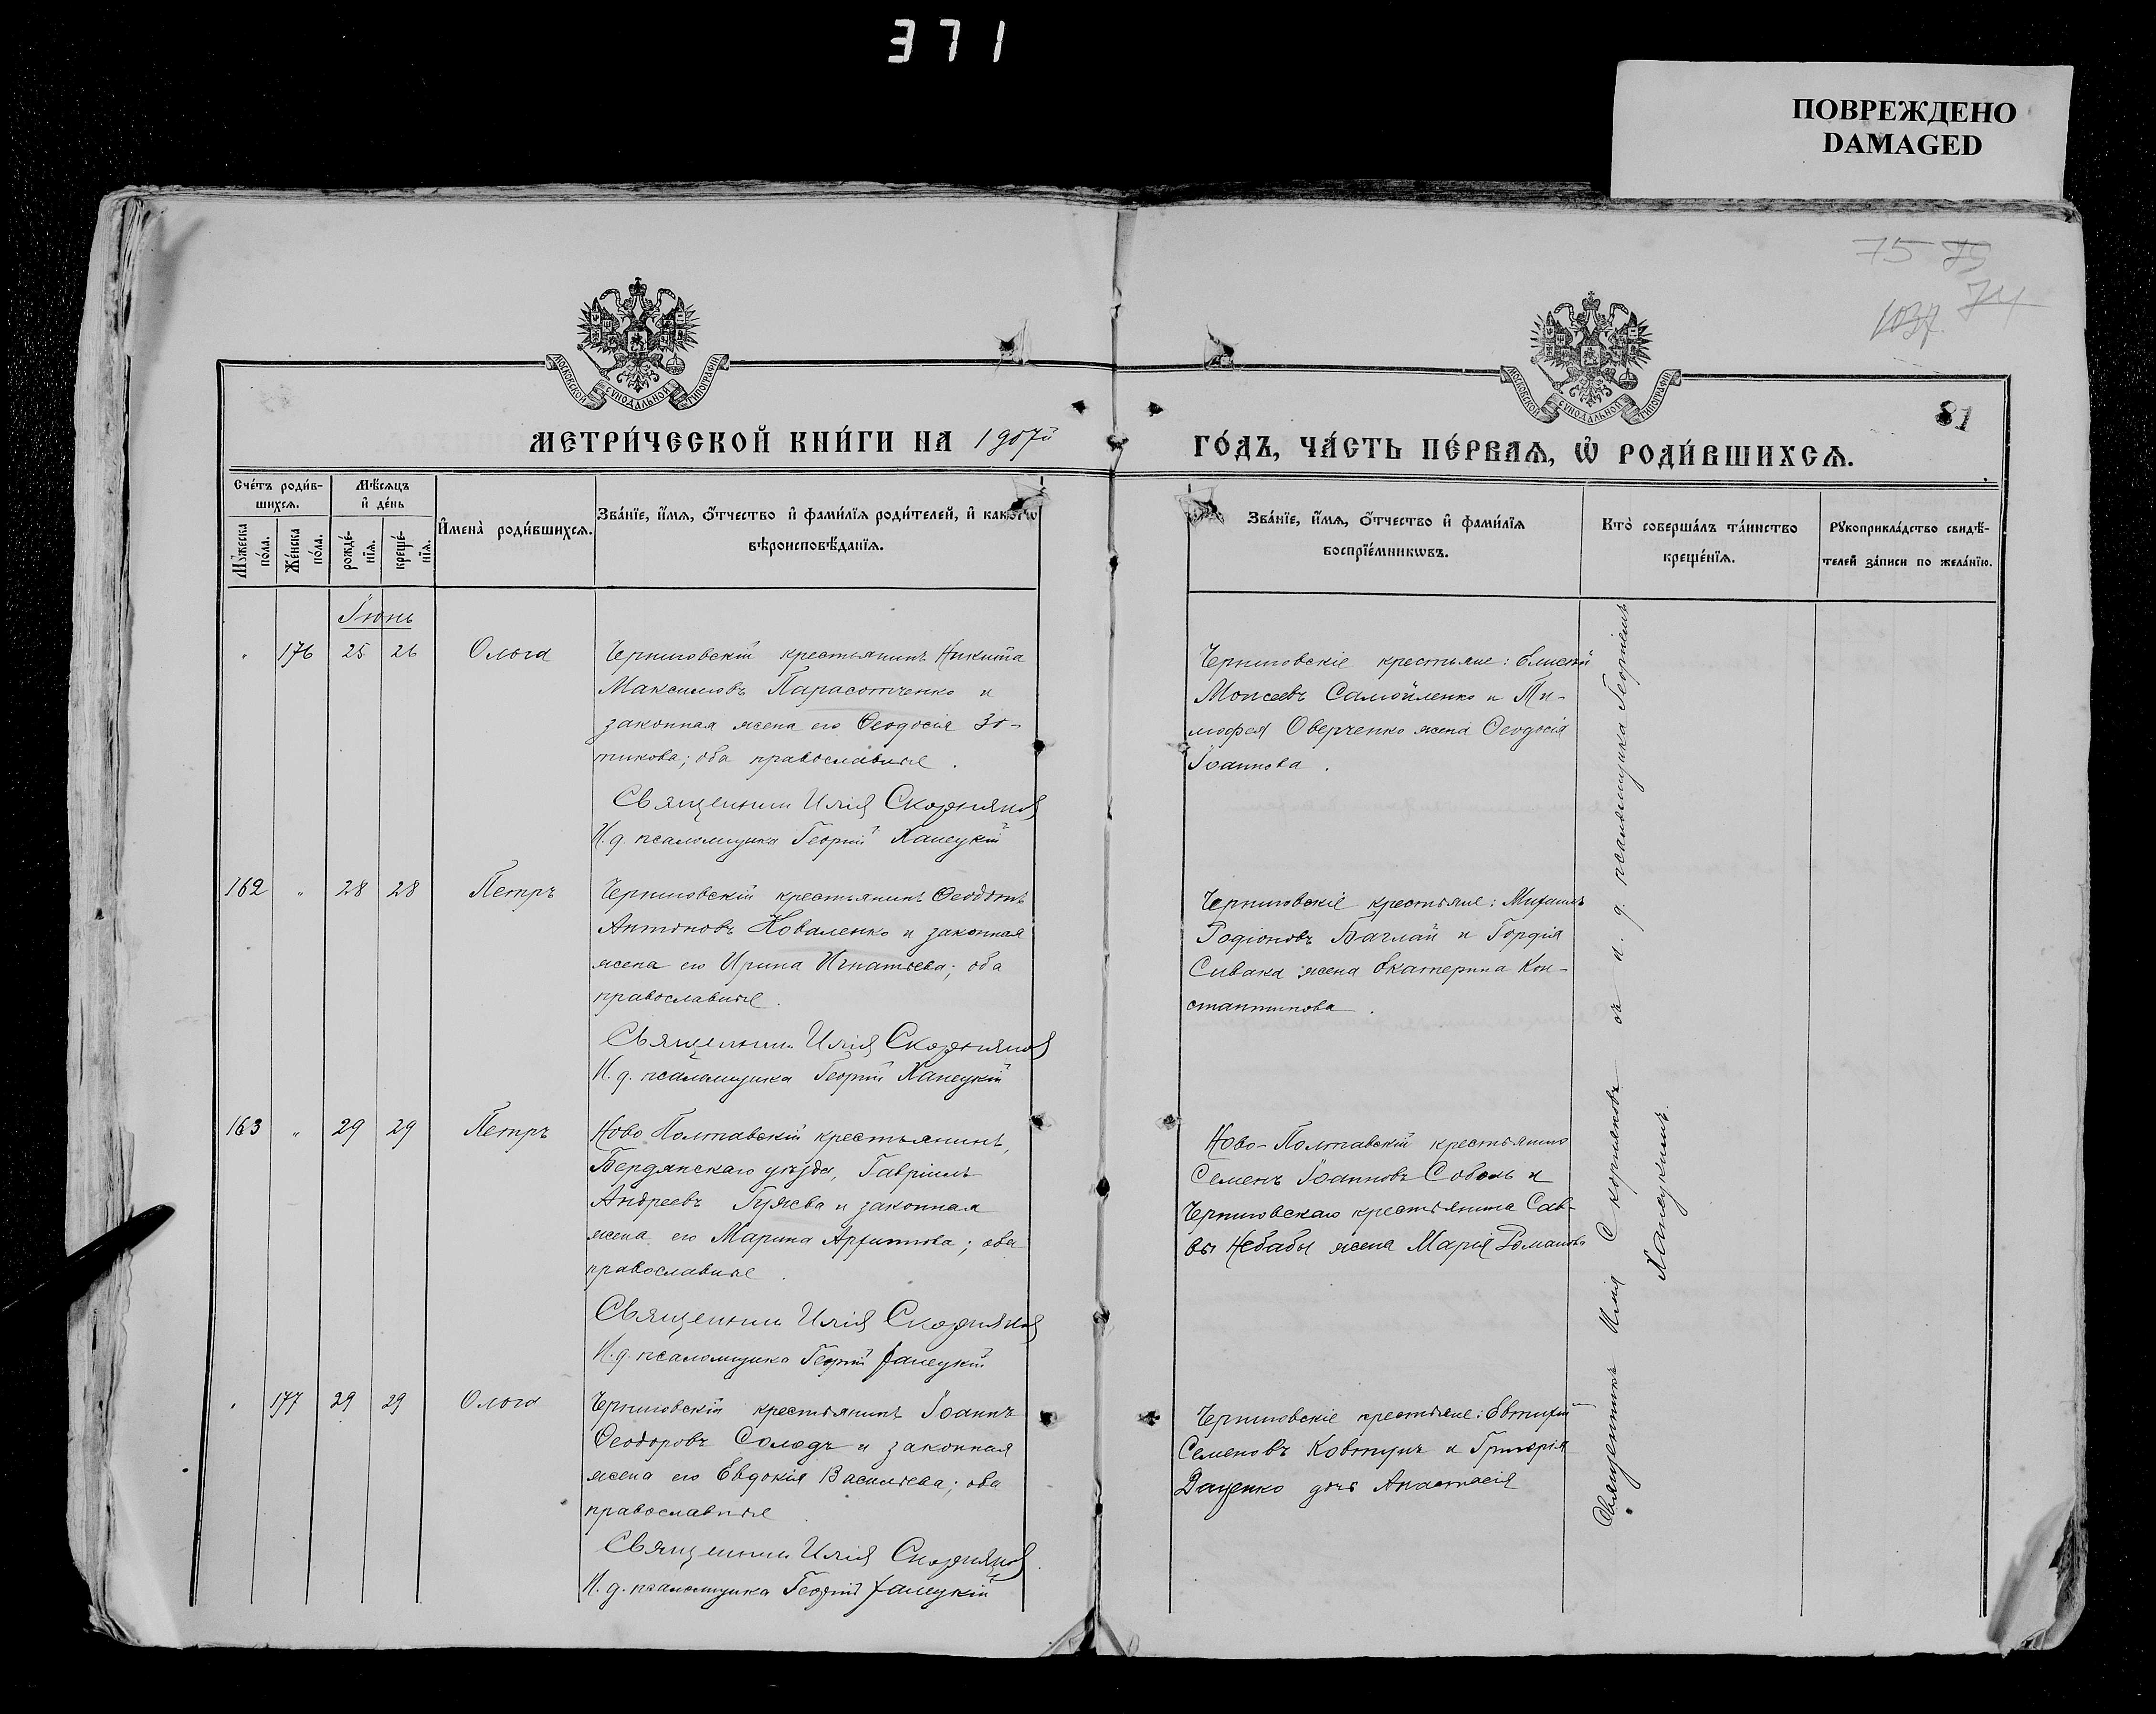 371
ПОВРЕЖДЕНО
DAMAGED
75
74
1037.
81
МОСКОВСКОЙ СУНОДАЛЬНОЙ ТИПОГРАФІИ
МОСКОВСКОЙ СУНОДАЛЬНОЙ ТИПОГРАФІИ
МЕТРИ́ЧЕСКОЙ КНИ́ГИ НА 1907й
ГО́ДЪ, ЧА́СТЬ ПЕ́РВАѦ, Ѡ҆ РОДИ́ВШИХСѦ.
Сче́тъ роди́в-
шихсѧ.
Мꙋ́жеска
по́ла.
Же́нска
по́ла.
Мѣ́сѧцъ
и҆ де́нь
рожде́-
нїѧ.
креще́-
нїѧ.
И҆мена̀ роди́вшихсѧ.
Зва́нїе, и҆́мѧ, ѻ҆́тчество и҆ фами́лїѧ роди́телей, и҆ како́гѡ
вѣроисповѣ́данїѧ.
Зва́нїе, и҆́мѧ, ѻ҆́тчество и҆ фами́лїѧ
воспрїе́мникѡвъ.
Кто̀ соверша́лъ та́инство
креще́нїѧ.
Рꙋкоприкла́дство свидѣ́-
телей за́писи по жела́нїю.
Іюнь
" 176 25 26 Ольга
Черниговскій крестьянинъ Никита
Максимовъ Парасотченко и
законная жена его Ѳеодосія Зо-
тикова; оба православные.
Священникъ Илія Скорняковъ
И. д. псаломщика Георгій Ханецкій
Черниговскіе крестьяне: Елисей
Моисеевъ Самойленко и Ти-
мофея Оверченко жена Ѳеодосія
Іоаннова.
162 " 28 28 Петръ
Черниговскій крестьянинъ Ѳеодотъ
Антоновъ Коваленко и законная
жена его Ирина Игнатьева; оба
православные.
Священникъ Илія Скорняковъ
И. д. псаломщика Георгій Ханецкій
Черниговскіе крестьяне: Михаилъ
Родіоновъ Баглай и Гордія
Сивака жена Екатерина Кон-
стантинова.
163 " 29 29 Петръ
Ново Полтавскій крестьянинъ,
Бердянскаго уѣзда, Гавріилъ
Андреевъ и законная
жена его Марина; оба
православные.
Священникъ Илія Скорняковъ
И. д. псаломщика Георгій Ханецкій
Ново-Полтавскій крестьянинъ
Семенъ Іоанновъ Соболь и
Черниговскаго крестьянина Сав-
вы Небабы жена Марія Романова
" 177 29 29 Ольга
Черниговскій крестьянинъ Іоаннъ
Ѳеодоровъ Солодъ и законная
жена его Евдокія Васильева; оба
православные
Священникъ Илія Скорняковъ
И. д. псаломщика Георгій Ханецкій
Черниговскіе крестьяне: Евтихій
Семеновъ Ковтунъ и Григорія
Даценко дочь Анастасія
Священникъ Илія Скорняковъ съ и. д. псаломщика Георгіемъ
Ханецкимъ.